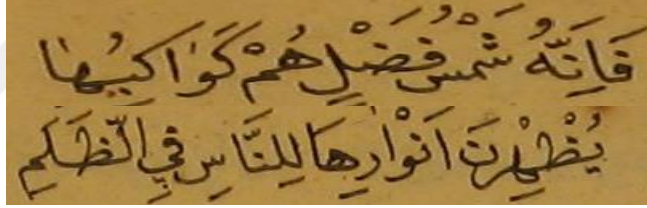 فَاِنَّهُ شَمْسُ فَضْلٍ هُمْ كَوَاكِبُهَا
يُظْهِرْنَ اَنْوَارِهَا لِلنَّاسِ فِي الظُّلَمِ